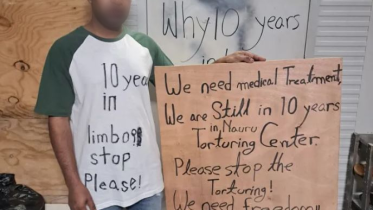 Why 10 years
in
10 year
in
limbo
stop
Please!
We need medical Treatment,
We are Still in 10 years
in, Nauru
Torturing Center.
Please stop the
Torturing!
We need freedom